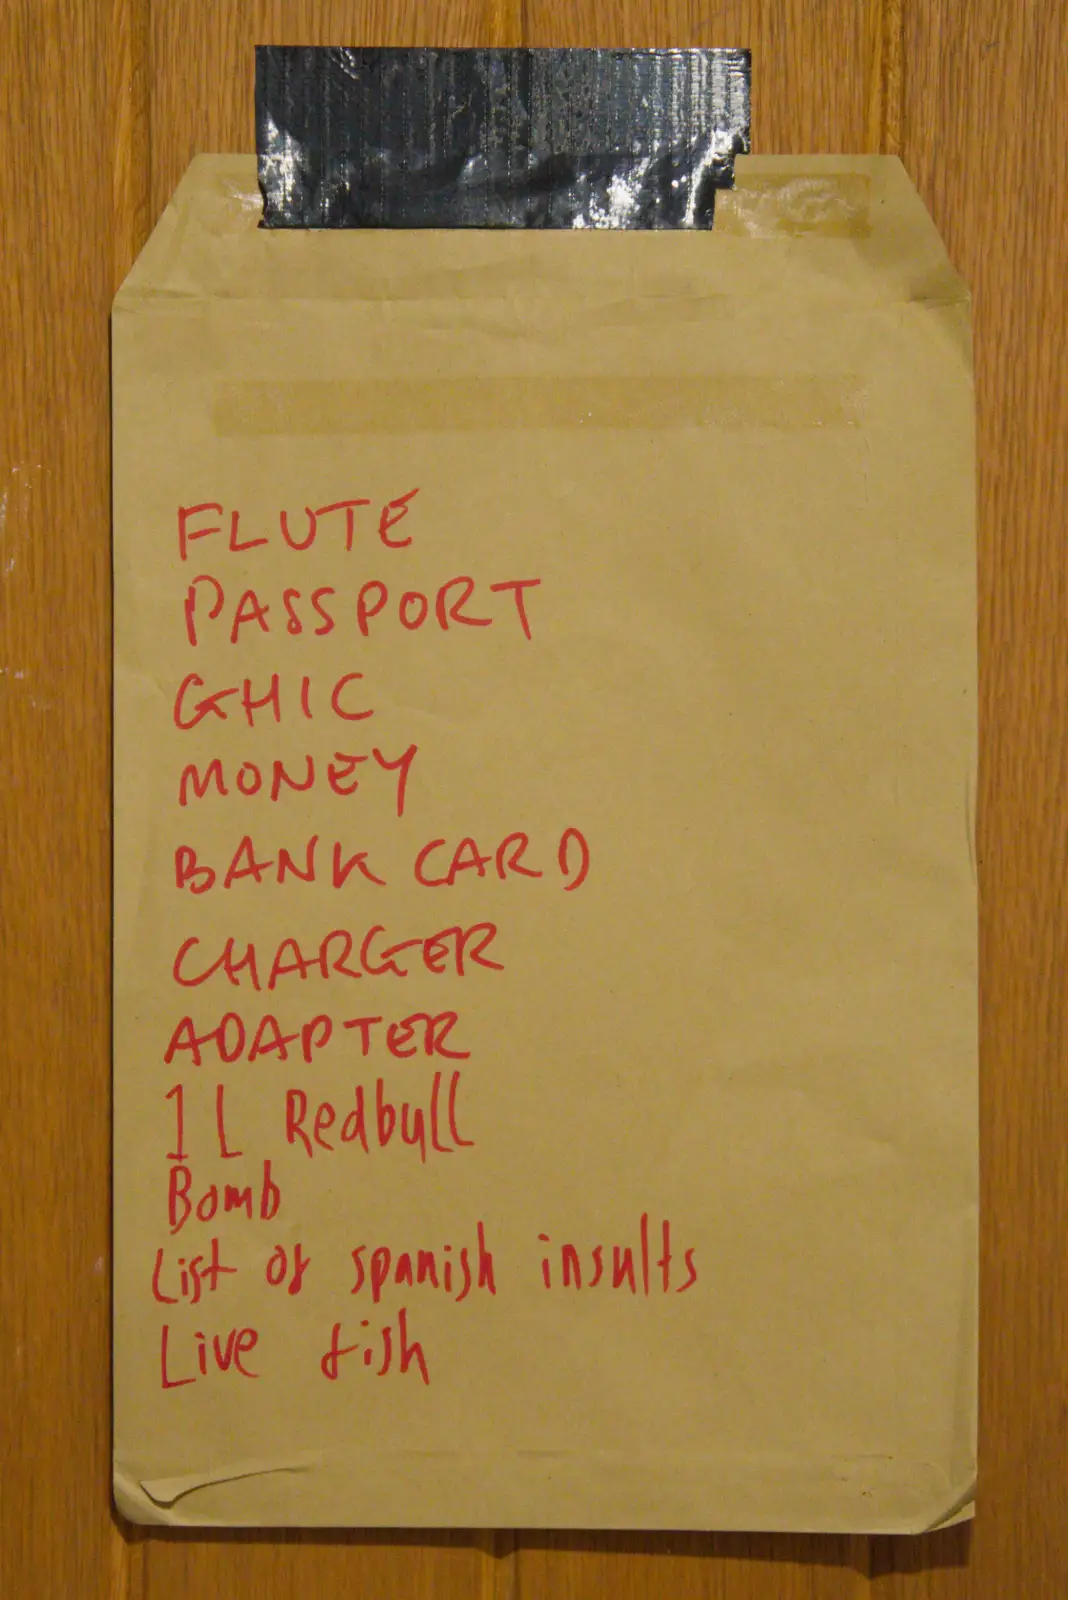 FLUTE
PASSPORT
GHIC
MONEY
BANK CARD
CHARGER
ADAPTER
1 L Redbull
Bomb
List of spanish insults
Live fish